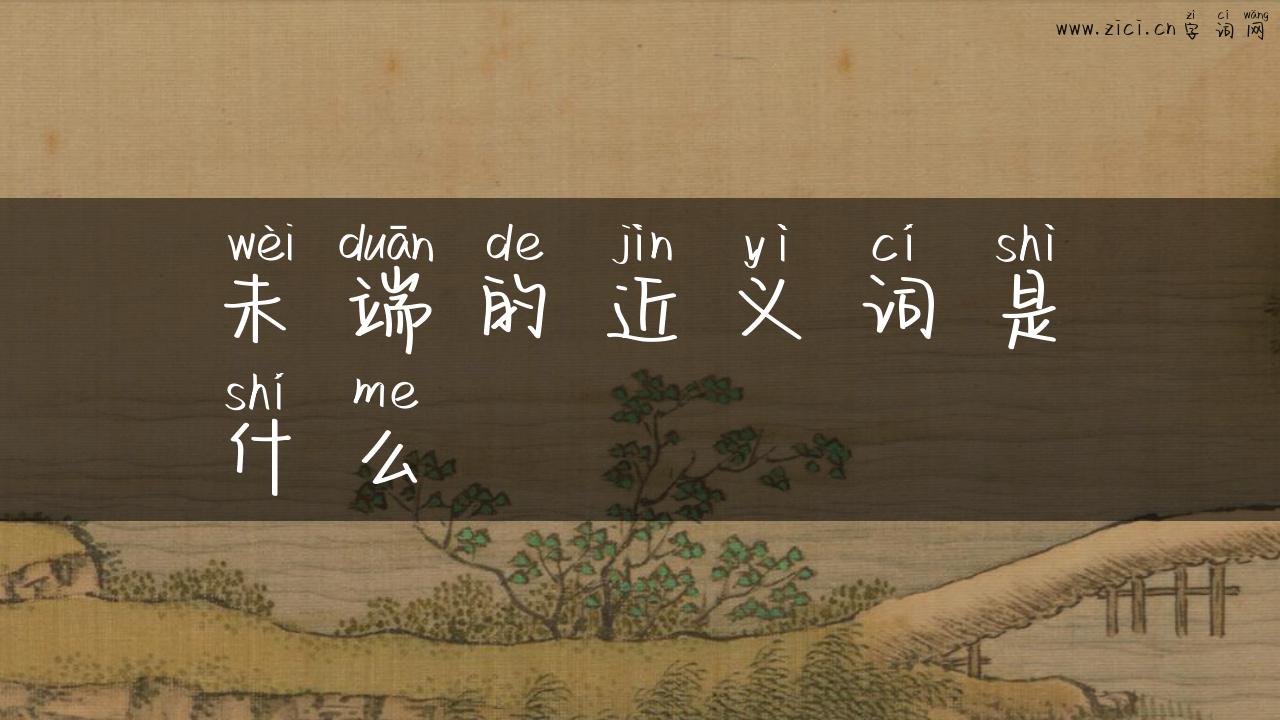 www.zici.cn
zì cí wǎng
字词网
wèi duān de jìn yì cí shì
未端的近义词是
shí me
什么